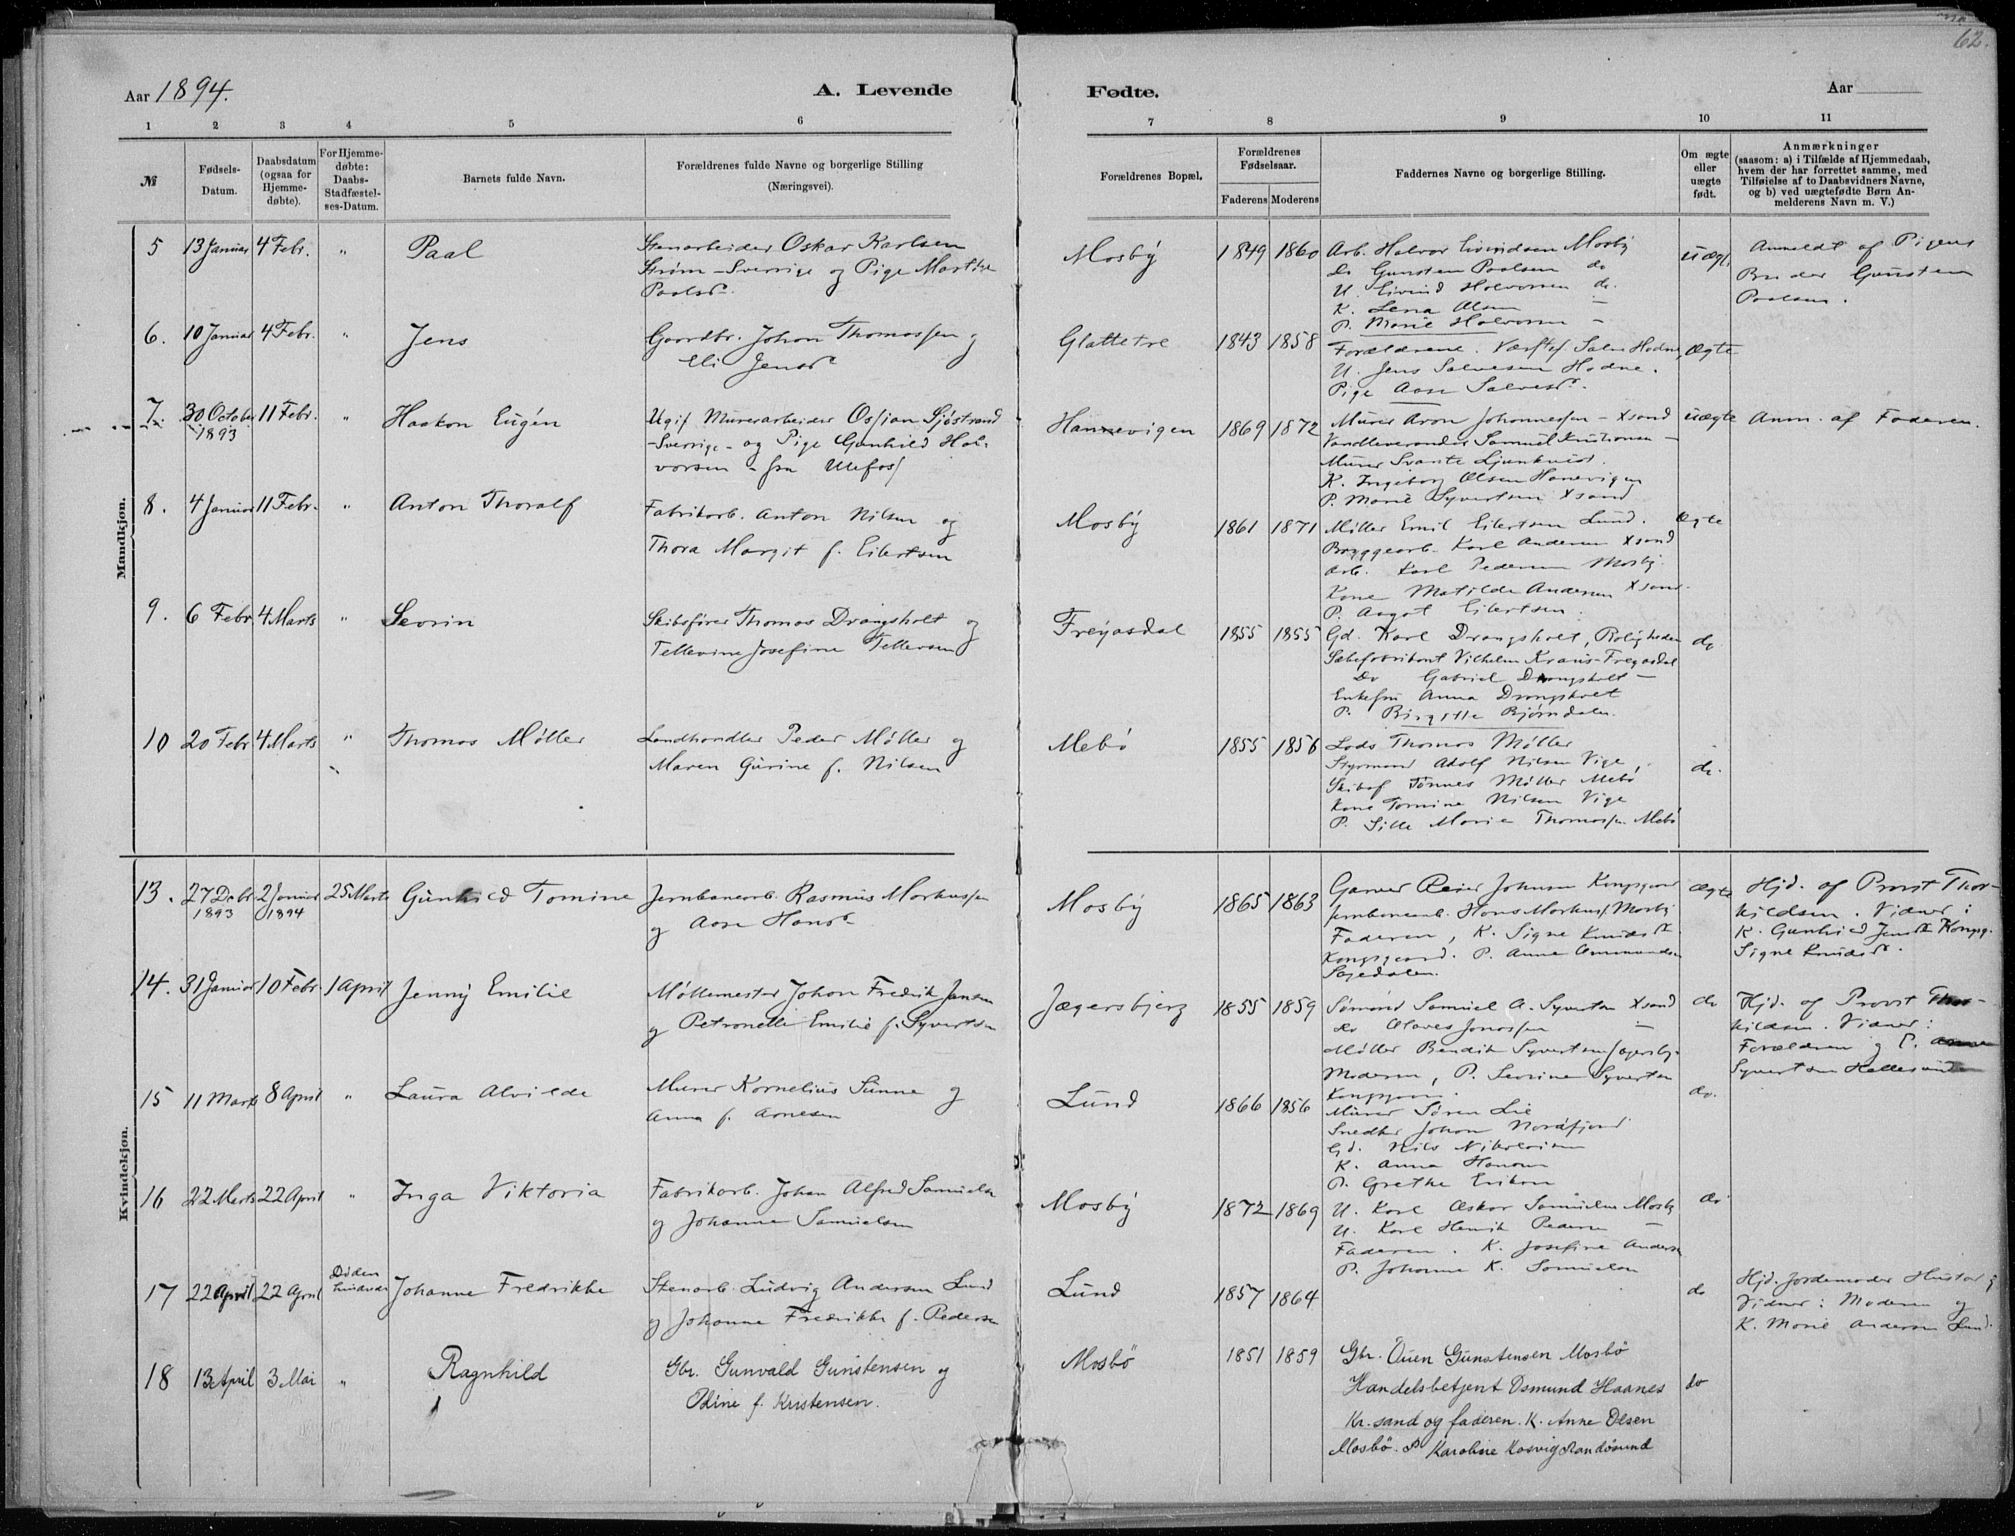 62.
Aar 1894.
A. Levende
Fødte.
Aar
1 2 3 4 5 6 7 8 9 10 11
№
Fødsels-
Datum.
Daabsdatum
(ogsaa for
Hjemme-
døbte).
For Hjemme-
døbte:
Daabs-
Stadfæstel-
ses-Datum.
Barnets fulde Navn.
Forældrenes fulde Navne og borgerlige Stilling
(Næringsvei).
Forældrenes Bopæl.
Forældrenes
Fødselsaar.
Faderens Moderens
Faddernes Navne og borgerlige Stilling.
Om ægte
eller
uægte
født.
Anmærkninger
(saasom: a) i Tilfælde af Hjemmedaab,
hvem der har forrettet samme, med
Tilføielse af to Daabsvidners Navne,
og b) ved uægtefødte Børn An-
melderens Navn m. V.)
Mandkjøn.
5 13 Januar 4 Febr. " Paal
Stenarbeider Oskar Karlsen
Strøm - Sverrige og Pige Marthe
Paalsd.
Mosby 1849 1860
Arb. Halvor Eivindsen Mosby
Do Gunsten Paalsen do
U. Eivind Halvorsen do.
K. Lena Olsen —
P. Marie Halvorsen —
uægt.
Anmeldt af Pigens
Broder Gunsten
Paalsen.
6. 10 Januar 4 Febr. " Jens
Gaardbr. Johan Thomassen og
Eli Jensd.
Glattetre 1843 1858
Forældrene. Værftsf. Salve Hodne,
U. Jens Salvesen Hodne.
Pige Aase Salvesd.
Ægte
7. 30 October 1893 11 Febr. " Haakon Eugén
Ugift Murerarbeider Ossian Sjøstrand
- Sverrige - og Pige Gunhild Hal-
vorsen - fra Ulefos
Hannevigen 1869 1872
Murer Aron Johannessen - Xsand
Vandleverandør Samuel Knutsonsen —
Murer Svante Ljunkvist.
K. Ingeborg Olsen Hanevigen
P. Marie Syvertsen Xsand
uægte
Anm. af Faderen.
8. 4 Januar 11 Febr. " Anton Thoralf
Fabrikarb. Anton Nilsen og
Thora Margit f. Eilertsen
Mosby 1861 1871
Møller Emil Eilertsen Lund.
Bryggearb. Karl Andersen Xsand
Arb. Karl Pedersen Mosby.
Kone Matilde Andersen Xsand.
P. Aagot Eilertsen.
Ægte
9. 6 Febr 4 Marts " Sevrin
Skibsfører Thomas Drangsholt og
Tellevine Josefine Tellefsen
Freyasdal 1855 1855
Gd. Karl Drangsholt, Roligheden
Sæbefabrikant Vilhelm Kraus-Freyasdal
Do Gabriel Drangsholt —
Enkefru Anna Drangsholt
P. Birgitte Bjørndalen.
do
10 20 Febr 4 Marts " Thomas Møller
Landhandler Peder Møller og
Maren Gurine f. Nilsen
Mebø 1855 1856
Lods Thomas Møller
Styrmand Adolf Nilsen Vige,
Skibsf Tønnes Møller Mebø
Kone Tomine Nilsen Vige
P. Sille Marie Thomassen Mebø
do.
Kvindekjøn.
13. 27 Decbr 1893 2 Januar 1894 25 Marts Gunhild Tomine
Jernbanearb. Rasmus Markussen
og Aase Hansd.
Mosby 1865 1863
Garver Reier Johnsen Kongsgaard
Jernbanearb. Hans Markuss. Mosby
Faderen, K. Signe Knudsd.
Kongsgaard. P. Anne Ommundsen
Sagedalen.
Ægte
Hjd. af Provst Thor-
kildsen. Vidner:
K. Gunhild Jensd. Kongsg.
Signe Knudsd.
14. 31 Januar 10 Febr. 1 April Jenny Emilie
Møllemester Johan Fredrik Jansen
og Petronelle Emilie f. Syvertsen
Jægersbjerg 1855 1859
Sømand Samuel A. Syvertsen Xsand
do Olaves Jonassen —
Møller Bendik Syvertsen Jægersbj.
Moderen, P. Severine Syvertsen
Kongsgaard.
do
Hjd. af Provst Thor-
kildsen. Vidner:
Forældren og P.
Syvertsen Hellesund
15 11 Marts 8 April " Laura Alvilde
Murer Kornelius Sunne og
Anna f. Arnesen
Lund 1866 1856
Murer Søren Lie
Snedker Johan Nordfjord
Gd. Nils Nikolaisen
K. Anna Hansen
P. Grethe Eriksen
do.
16 22 Marts 22 April " Inga Viktoria
Fabrikarb. Johan Alfred Samuelsen
og Johanne Samuelsen
Mosby 1872 1869
U. Karl Oskar Samuelsen Mosby
U. Karl Henrik Pedersen —
Faderen. K. Josefine Andersen
P. Johanne K. Samuelsen
do
17 22 April 22 April Døden hindrede Johanne Fredrikke
Stenarb. Ludvig Andersen Lund
og Johanne Fredrikke f. Pedersen
Lund 1857 1864
do
Hjd. Jordemoder Hustad;
Vidner: Moderen og
K. Marie Andersen Lund.
18 13 April 3 Mai " Ragnhild
Gbr. Gunvald Gunstensen og
Odine f. Kristensen.
Mosbö 1851 1859
Gbr. Ouen Gunstensen Mosbö
Handelsbetjent Osmund Haanes
Kr. sand og faderen. K. Anne Olsen
Mosbö. P Karoline Kosvig Randösund
do